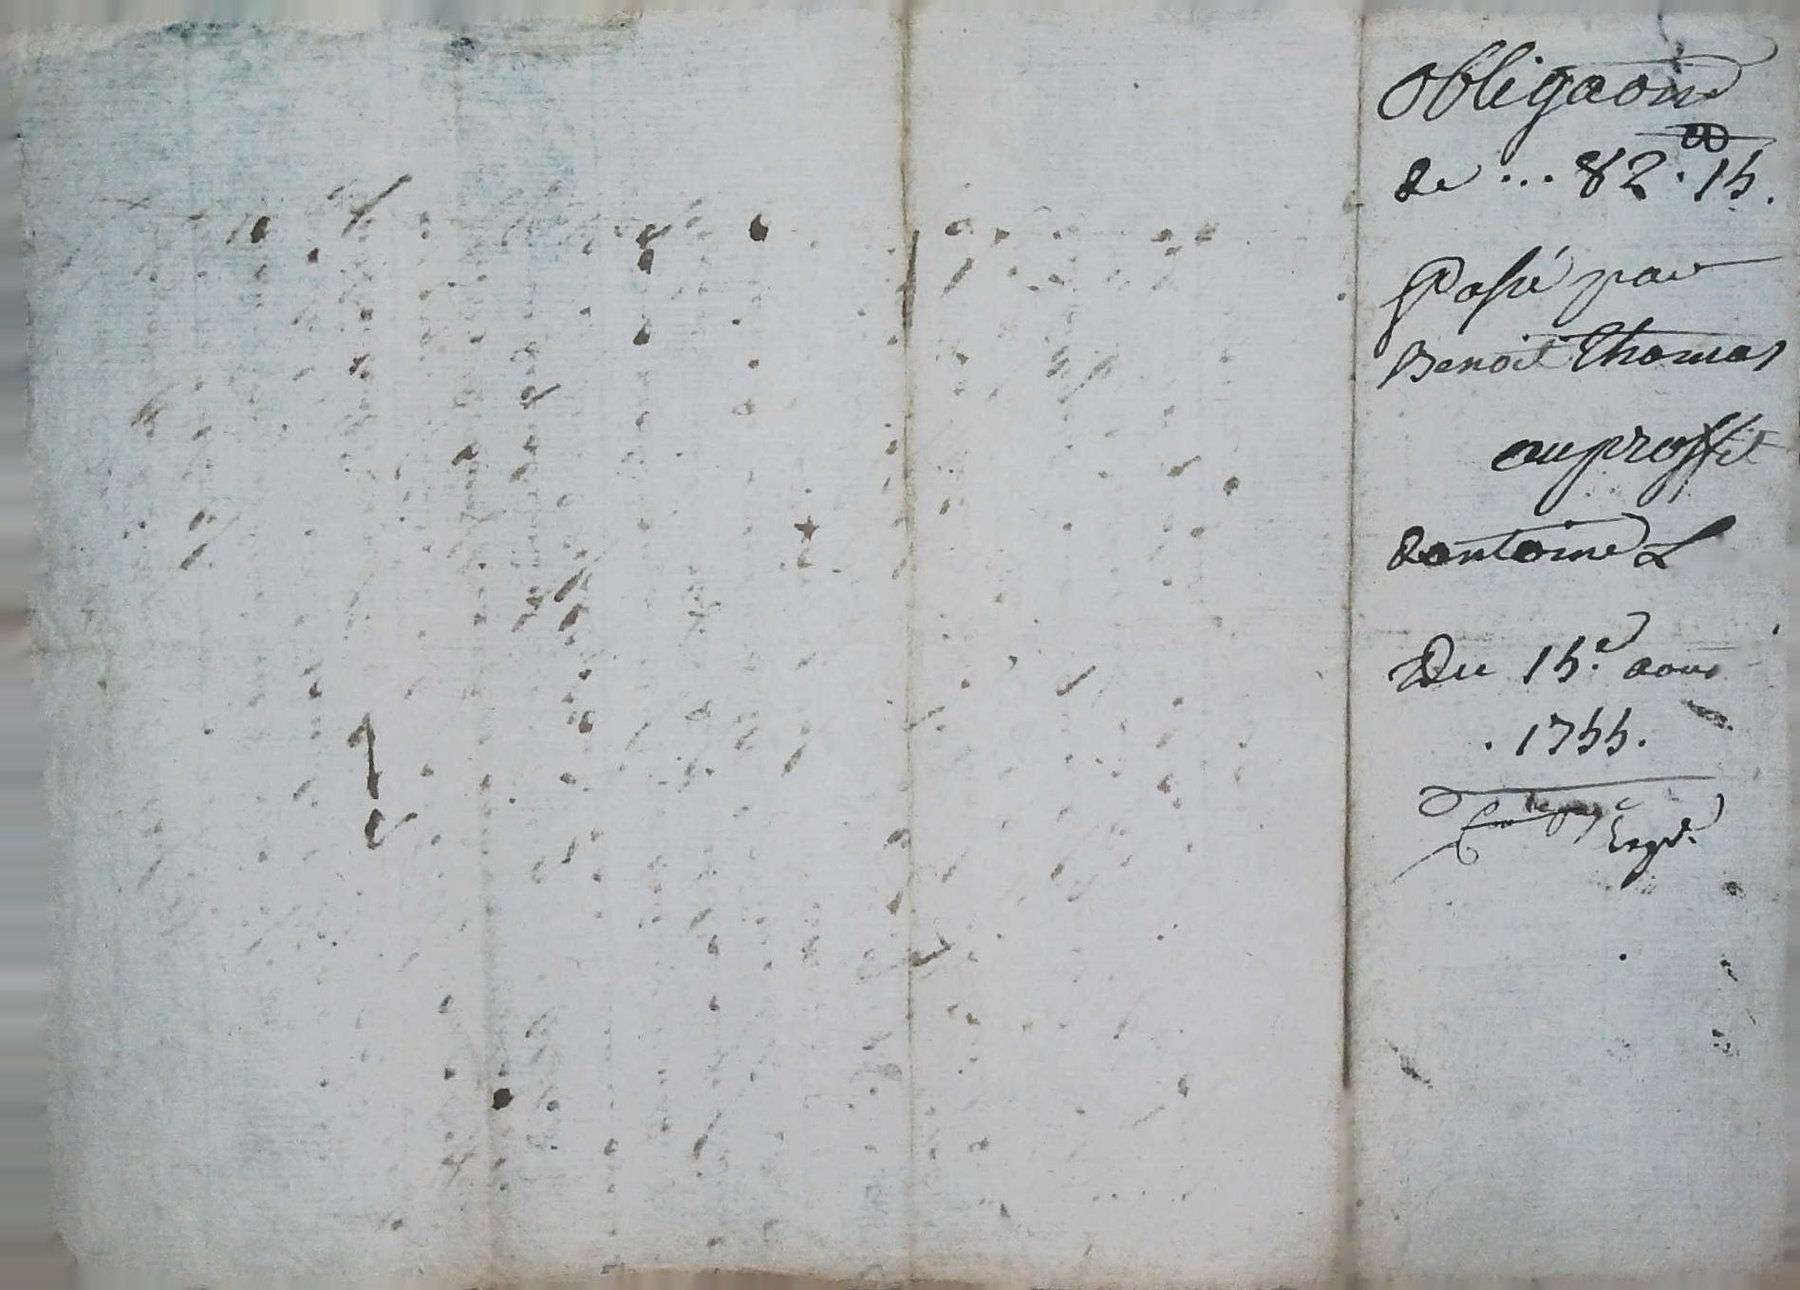 obligaon
de ... 82 . 15 .
Passé par
Benoit Thomas
au proffit
dantoine L
Du 15.e aous
. 1755 .
Expd.